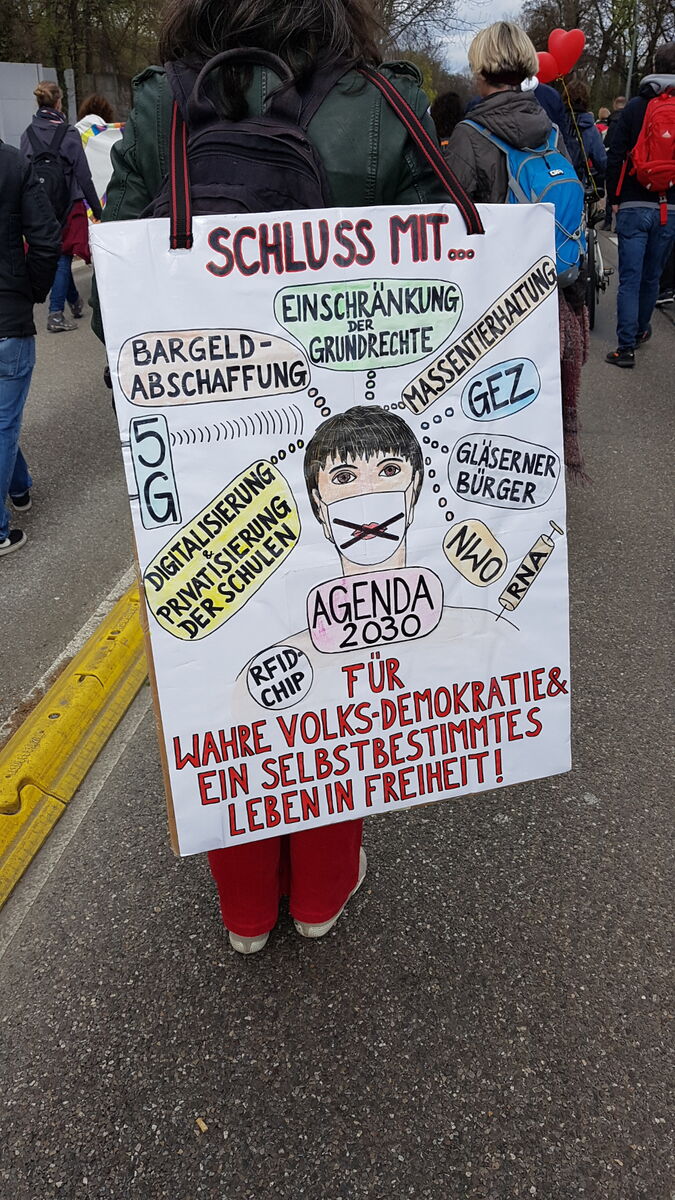 SCHLUSS MIT...
EINSCHRÄNKUNG
DER
GRUNDRECHTE
MASSENTIERHALTUNG
BARGELD-
ABSCHAFFUNG
GEZ
5
G
GLÄSERNER
BÜRGER
DIGITALISIERUNG
&
PRIVATISIERUNG
DER SCHULEN
NWO
RNA
AGENDA
2030
RFID-
CHIP
FÜR
WAHRE VOLKS-DEMOKRATIE&
EIN SELBSTBESTIMMTES
LEBEN IN FREIHEIT!